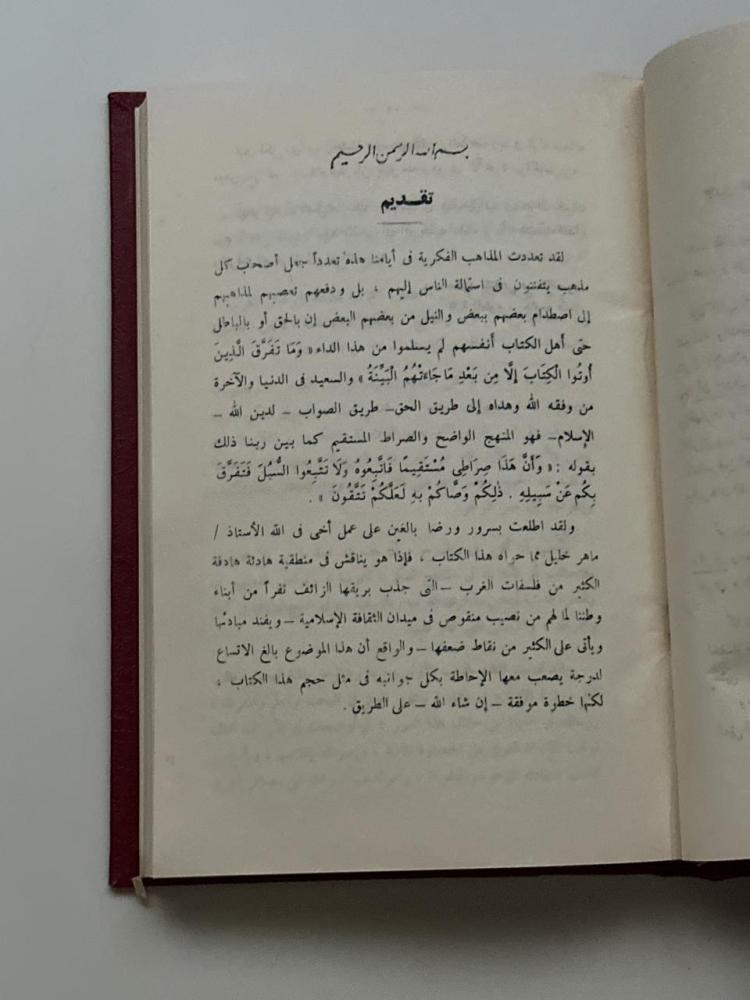 بسم الله الرحمن الرحيم
تقديم
لقد تعددت المذاهب الفكرية فى أيامنا هذه تعدداً جعل أصحاب كل
مذهب يتفننون فى استمالة الناس إليهم ، بل ودفعهم تعصبهم لمذاهبهم
إلى اصطدام بعضهم ببعض والنيل من بعضهم البعض إن بالحق أو بالباطل
حتى أهل الكتاب أنفسهم لم يسلموا من هذا الداء « وَمَا تَفَرَّقَ الَّذِينَ
أُوتُوا الْكِتَابَ إِلَّا مِن بَعْدِ مَا جَاءَتْهُمُ الْبَيِّنَةُ » والسعيد فى الدنيا والآخرة
من وفقه الله وهداه إلى طريق الحق – طريق الصواب – لدين الله –
الإسلام – فهو المنهج الواضح والصراط المستقيم كما بين ربنا ذلك
بقوله : « وَأَنَّ هَذَا صِرَاطِى مُسْتَقِيمًا فَاتَّبِعُوهُ وَلَا تَتَّبِعُوا السُّبُلَ فَتَفَرَّقَ
بِكُمْ عَنْ سَبِيلِهِ . ذَلِكُمْ وَصَّاكُمْ بِهِ لَعَلَّكُمْ تَتَّقُونَ » .
ولقد اطلعت بسرور ورضا بالغين على عمل أخى فى الله الأستاذ /
ماهر خليل مما حواه هذا الكتاب ، فإذا هو يناقش فى منطقية هادئة هادفة
الكثير من فلسفات الغرب – التى جذب بريقها الزائف نفراً من أبناء
وطننا لما لهم من نصيب منقوص فى ميدان الثقافة الإسلامية – ويفند مبادئها
ويأتى على الكثير من نقاط ضعفها – والواقع أن هذا الموضوع بالغ الاتساع
لدرجة يصعب معها الإحاطة بكل جوانبه فى مثل حجم هذا الكتاب ،
لكنها خطوة موفقة – إن شاء الله – على الطريق .